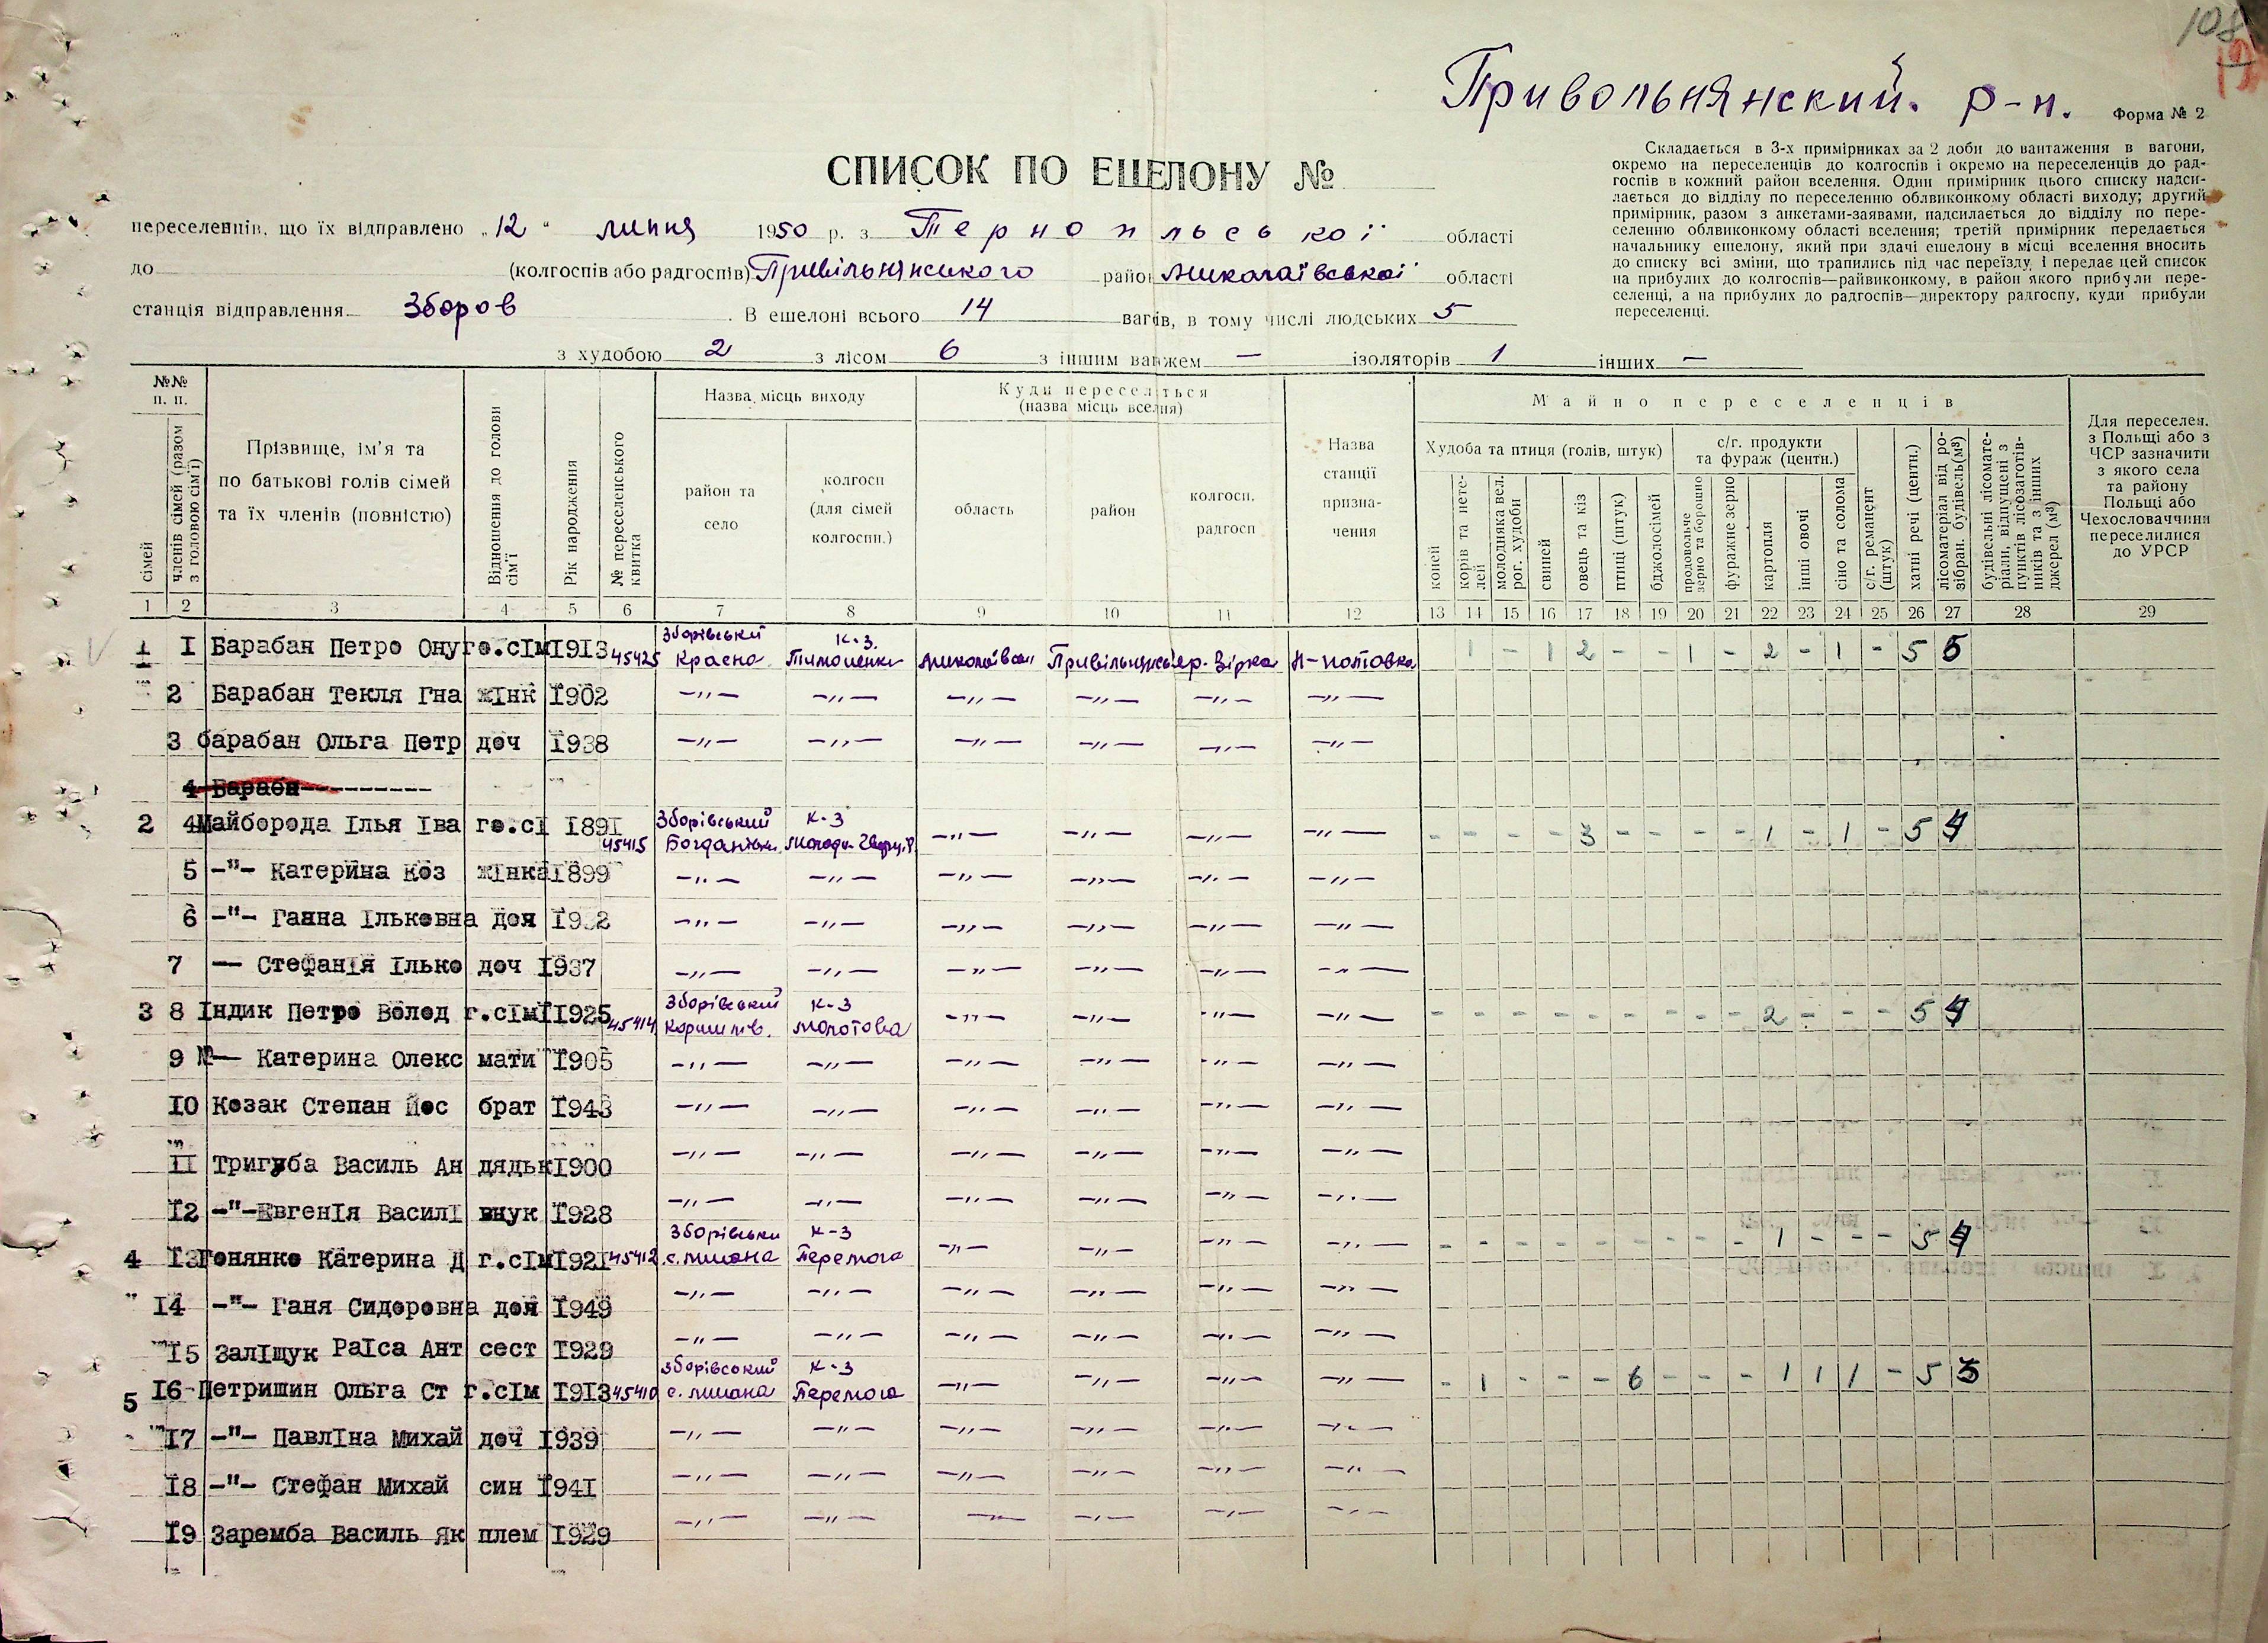 108
19
Привольнянский. р-н.
Форма № 2
СПИСОК ПО ЕШЕЛОНУ №
Складається в 3-х примірниках за 2 доби до вантаження в вагони,
окремо на переселенців до колгоспів і окремо на переселенців до рад-
госпів в кожний район вселення. Один примірник цього списку надси-
лається до відділу по переселенню облвиконкому області виходу; другий
примірник, разом з анкетами-заявами, надсилається до відділу по пере-
селенню облвиконкому області вселення; третій примірник передається
начальнику ешелону, який при здачі ешелону в місці вселення вносить
до списку всі зміни, що трапились під час переїзду, і передає цей список
на прибулих до колгоспів—райвиконкому, в район якого прибули пере-
селенці, а на прибулих до радгоспів—директору радгоспу, куди прибули
переселенці.
переселенців, що їх відправлено „12“ липня 1950 р. з Тернопільської області
до (колгоспів або радгоспів) Привільнянського район Миколаївської області
станція відправлення Зборов. В ешелоні всього 14 вагів, в тому числі людських 5
з худобою 2 з лісом 6 з іншим вантжем — ізоляторів 1 інших —
№№ п. п.
сімей
членів сімей (разом з головою сім'ї)
Прізвище, ім'я та по батькові голів сімей та їх членів (повністю)
Відношення до голови сім'ї
Рік народження
№ переселенського квитка
Назва місць виходу
район та село
колгосп (для сімей колгоспн.)
Куди переселяться (назва місць вселня)
область
район
колгосп, радгосп
Назва станції призна-чення
Майно переселенців
Худоба та птиця (голів, штук)
с/г. продукти та фураж (центн.)
коней
корів та нете-лей
молодняка вел. рог. худоби
свиней
овець та кіз
птиці (штук)
бджолосімей
продовольче зерно та борошно
фуражне зерно
картопля
інші овочі
сіно та солома
с/г. реманент (штук)
хатні речі (центн.)
лісоматеріал від ро-зібран. будівель(м³)
будівельні лісомате-ріали, відпущені з пунктів лісозаготів-ників та з інших джерел (м³)
Для переселен. з Польщі або з ЧСР зазначити з якого села та району Польщі або Чехословаччини переселилися до УРСР
1 2 3 4 5 6 7 8 9 10 11 12 13 14 15 16 17 18 19 20 21 22 23 24 25 26 27 28 29
1 I Барабан Петро Ону го.сІм I9I3 45425 Зборівський Красна к-з. Тимошенка Миколаївськ Привільнянськ Чер. Зірка Н-Полтовка 1 - 1 2 - - 1 - 2 - 1 - 5 5
2 Барабан Текля Гна жІнк I902 —"— —"— —"— —"— —"— —"—
3 барабан Ольга Петр доч I938 —"— —"— —"— —"— —"— —"—
4 Барабн---------
2 4 Майборода Ілья Іва го.сІ I89I 45415 Зборівський к-з —"— —"— —"— —"— - - - - 3 - - - - 1 - 1 - 5 4
5 -"- Катерина Коз жІнка I899 —"— —"— —"— —"— —"— —"—
6 -"- Ганна Ільковна доя —"— —"— —"— —"— —"— —"—
7 — СтефанІя Ілько доч I937 —"— —"— —"— —"— —"— —"—
3 8 Індик Петро Волод г.сІмІ I925 45414 Зборівський к-з Молотова —"— —"— —"— —"— - - - - - - - - - 2 - - - 5 4
9 — Катерина Олекс мати I905 —"— —"— —"— —"— —"— —"—
IO Козак Степан Йос брат I943 —"— —"— —"— —"— —"— —"—
II Тригуба Василь Ан дядьк I900 —"— —"— —"— —"— —"— —"—
I2 -"-ЕвгенІя ВасилІ внук I928 —"— —"— —"— —"— —"— —"—
4 I3 Гонянко Катерина Д г.сІм I92I 45412 Зборівськи к-з Перемога —"— —"— —"— —"— - - - - - - - - - 1 - - - 5 4
" I4 -"- Ганя Сидоровна доя I949 —"— —"— —"— —"— —"— —"—
I5 ЗалІщук РаІса Ант сест I929 —"— —"— —"— —"— —"— —"—
5 I6 Петришин Ольга Ст г.сІм I9I3 45410 Зборівський к-з Перемога —"— —"— —"— —"— - 1 - - - 6 - - - 1 1 1 - 5 3
I7 -"- ПавлІна Михай доч I939 —"— —"— —"— —"— —"— —"—
I8 -"- Стефан Михай син I94I —"— —"— —"— —"— —"— —"—
I9 Заремба Василь Як плем I929 —"— —"— —"— —"— —"— —"—